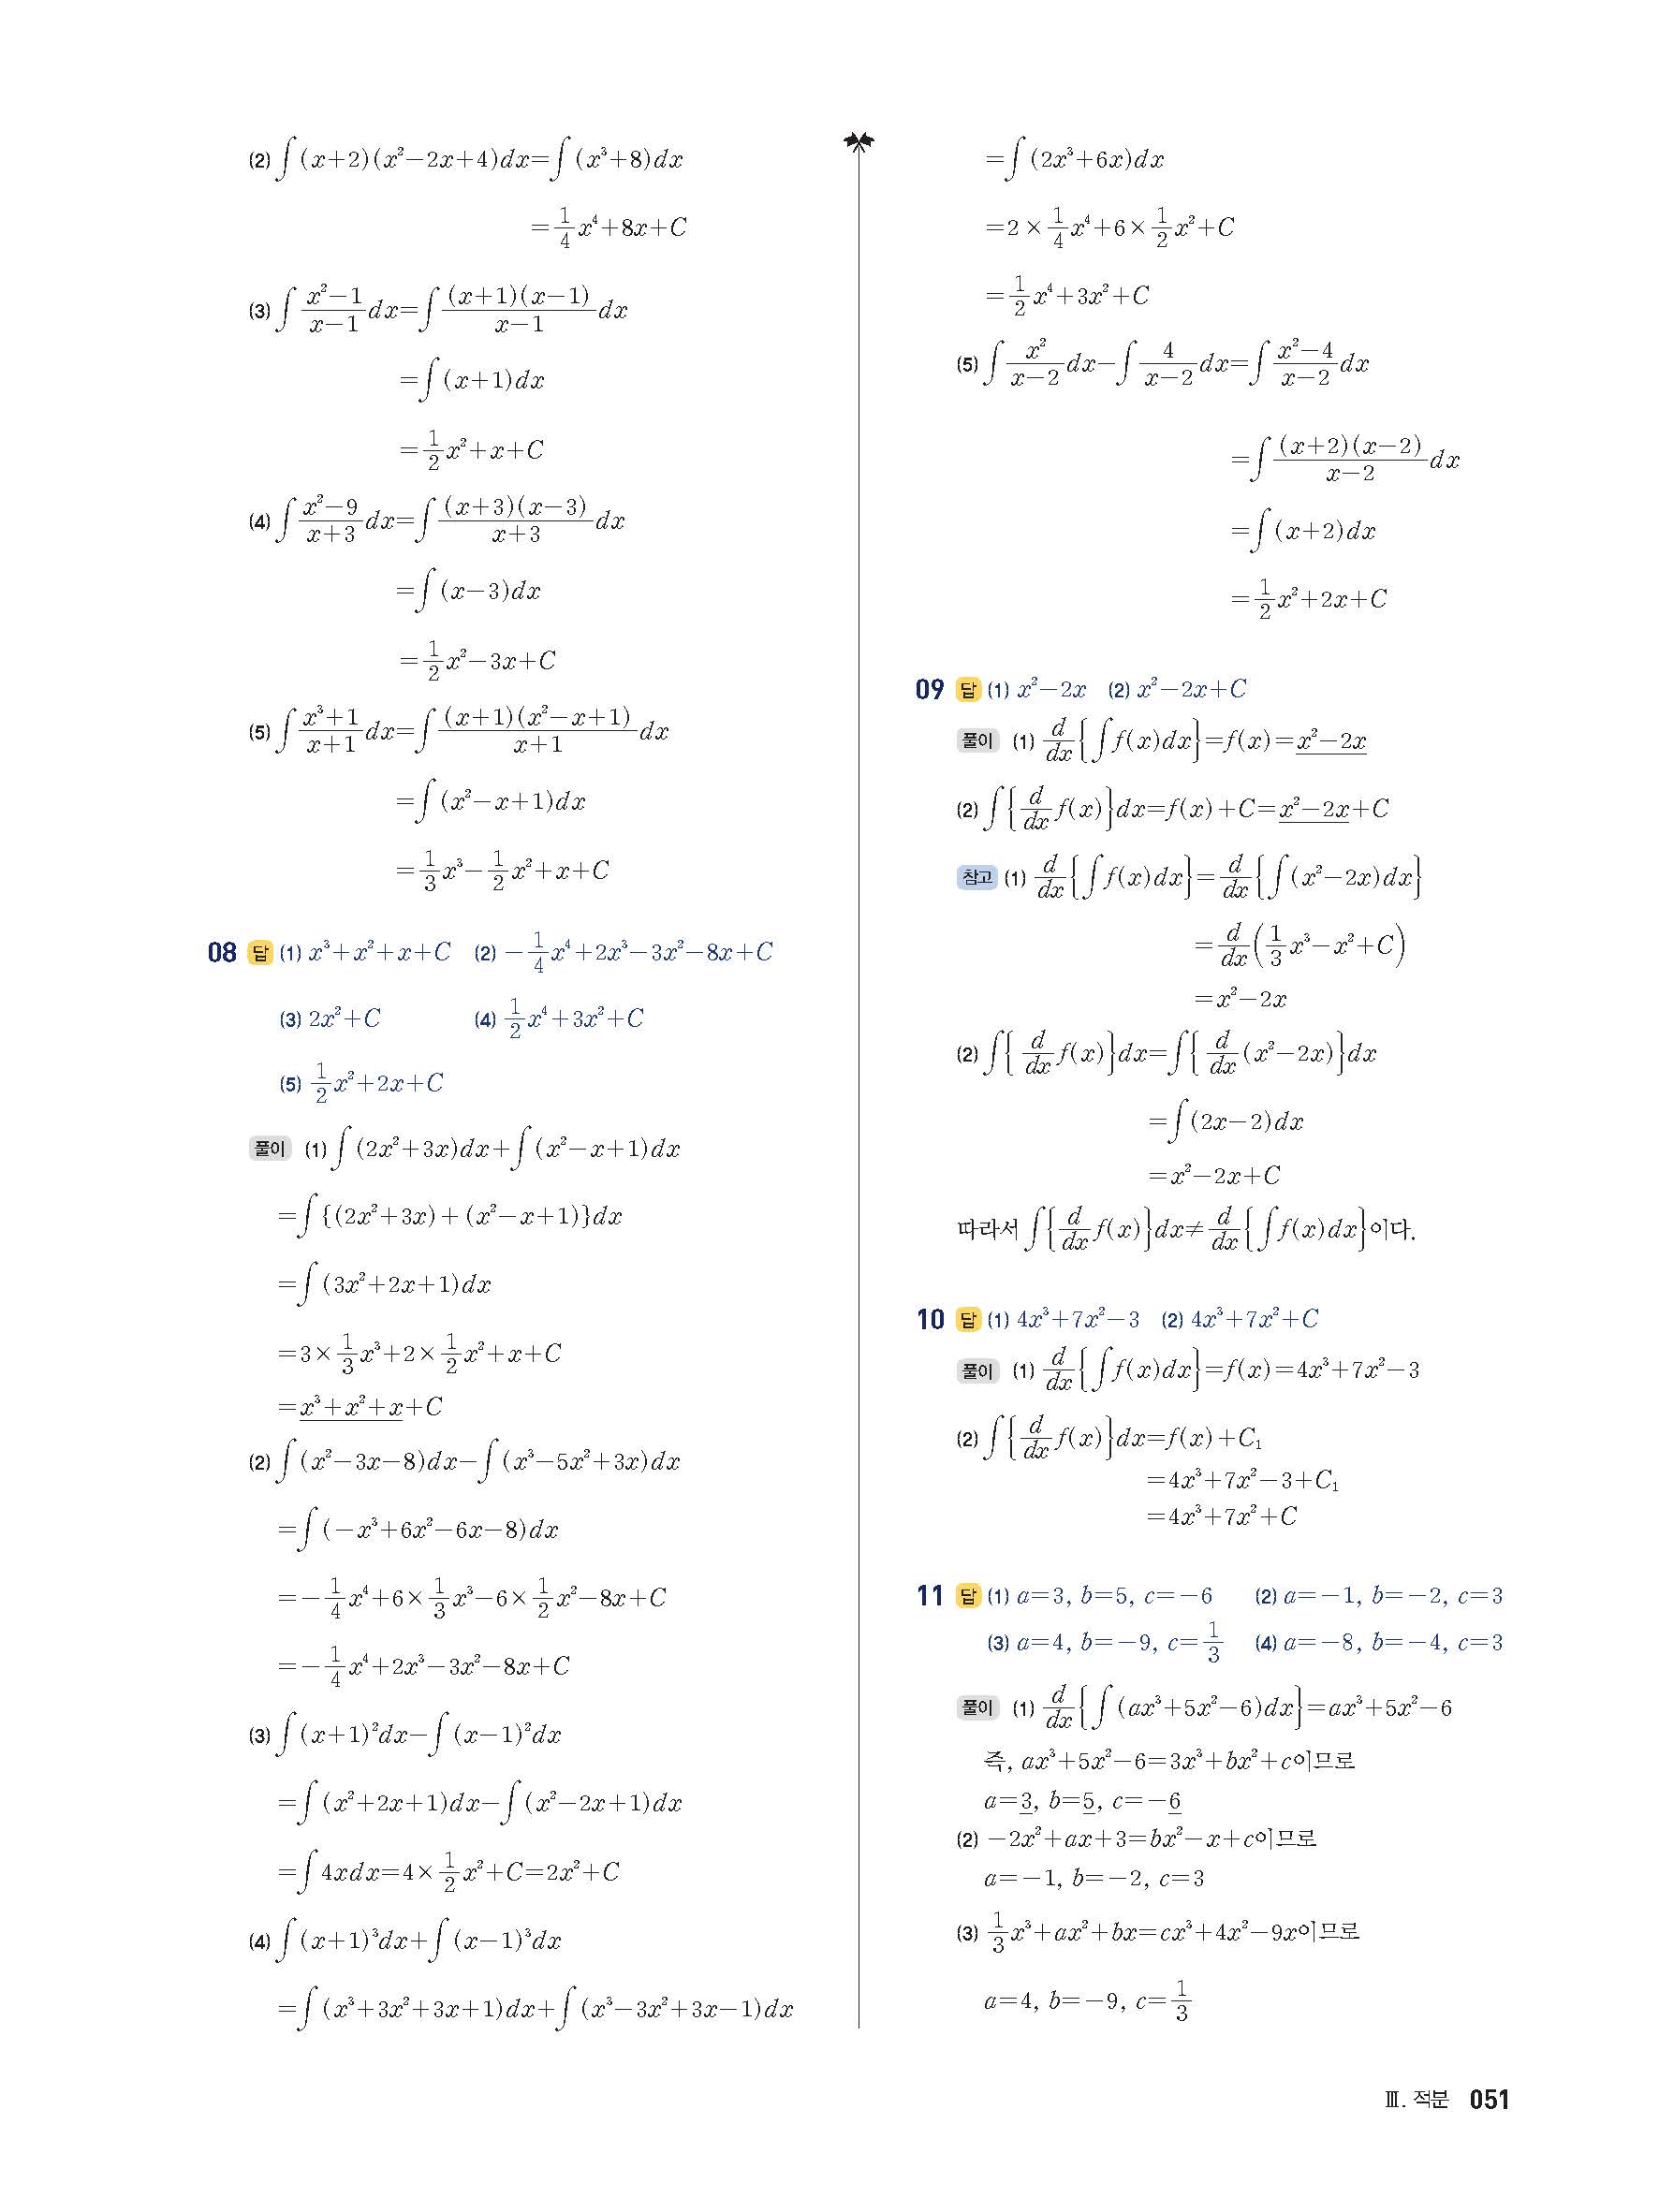 (2) ∫(x+2)(x²−2x+4)dx=∫(x³+8)dx
=1/4x⁴+8x+C
(3) ∫(x²−1)/(x−1)dx=∫{(x+1)(x−1)}/(x−1)dx
=∫(x+1)dx
=1/2x²+x+C
(4) ∫(x²−9)/(x+3)dx=∫{(x+3)(x−3)}/(x+3)dx
=∫(x−3)dx
=1/2x²−3x+C
(5) ∫(x³+1)/(x+1)dx=∫{(x+1)(x²−x+1)}/(x+1)dx
=∫(x²−x+1)dx
=1/3x³−1/2x²+x+C
08 답 (1) x³+x²+x+C (2) −1/4x⁴+2x³−3x²−8x+C
(3) 2x²+C (4) 1/2x⁴+3x²+C
(5) 1/2x²+2x+C
풀이 (1) ∫(2x²+3x)dx+∫(x²−x+1)dx
=∫{(2x²+3x)+(x²−x+1)}dx
=∫(3x²+2x+1)dx
=3×1/3x³+2×1/2x²+x+C
=x³+x²+x+C
(2) ∫(x²−3x−8)dx−∫(x³−5x²+3x)dx
=∫(−x³+6x²−6x−8)dx
=−1/4x⁴+6×1/3x³−6×1/2x²−8x+C
=−1/4x⁴+2x³−3x²−8x+C
(3) ∫(x+1)²dx−∫(x−1)²dx
=∫(x²+2x+1)dx−∫(x²−2x+1)dx
=∫4xdx=4×1/2x²+C=2x²+C
(4) ∫(x+1)³dx+∫(x−1)³dx
=∫(x³+3x²+3x+1)dx+∫(x³−3x²+3x−1)dx
=∫(2x³+6x)dx
=2×1/4x⁴+6×1/2x²+C
=1/2x⁴+3x²+C
(5) ∫x²/(x−2)dx−∫4/(x−2)dx=∫(x²−4)/(x−2)dx
=∫{(x+2)(x−2)}/(x−2)dx
=∫(x+2)dx
=1/2x²+2x+C
09 답 (1) x²−2x (2) x²−2x+C
풀이 (1) d/dx{∫f(x)dx}=f(x)=x²−2x
(2) ∫{d/dx f(x)}dx=f(x)+C=x²−2x+C
참고 (1) d/dx{∫f(x)dx}=d/dx{∫(x²−2x)dx}
=d/dx(1/3x³−x²+C)
=x²−2x
(2) ∫{d/dx f(x)}dx=∫{d/dx(x²−2x)}dx
=∫(2x−2)dx
=x²−2x+C
따라서 ∫{d/dx f(x)}dx≠d/dx{∫f(x)dx}이다.
10 답 (1) 4x³+7x²−3 (2) 4x³+7x²+C
풀이 (1) d/dx{∫f(x)dx}=f(x)=4x³+7x²−3
(2) ∫{d/dx f(x)}dx=f(x)+C₁
=4x³+7x²−3+C₁
=4x³+7x²+C
11 답 (1) a=3, b=5, c=−6 (2) a=−1, b=−2, c=3
(3) a=4, b=−9, c=1/3 (4) a=−8, b=−4, c=3
풀이 (1) d/dx{∫(ax³+5x²−6)dx}=ax³+5x²−6
즉, ax³+5x²−6=3x³+bx²+c이므로
a=3, b=5, c=−6
(2) −2x²+ax+3=bx²−x+c이므로
a=−1, b=−2, c=3
(3) 1/3x³+ax²+bx=cx³+4x²−9x이므로
a=4, b=−9, c=1/3
Ⅲ. 적분 051